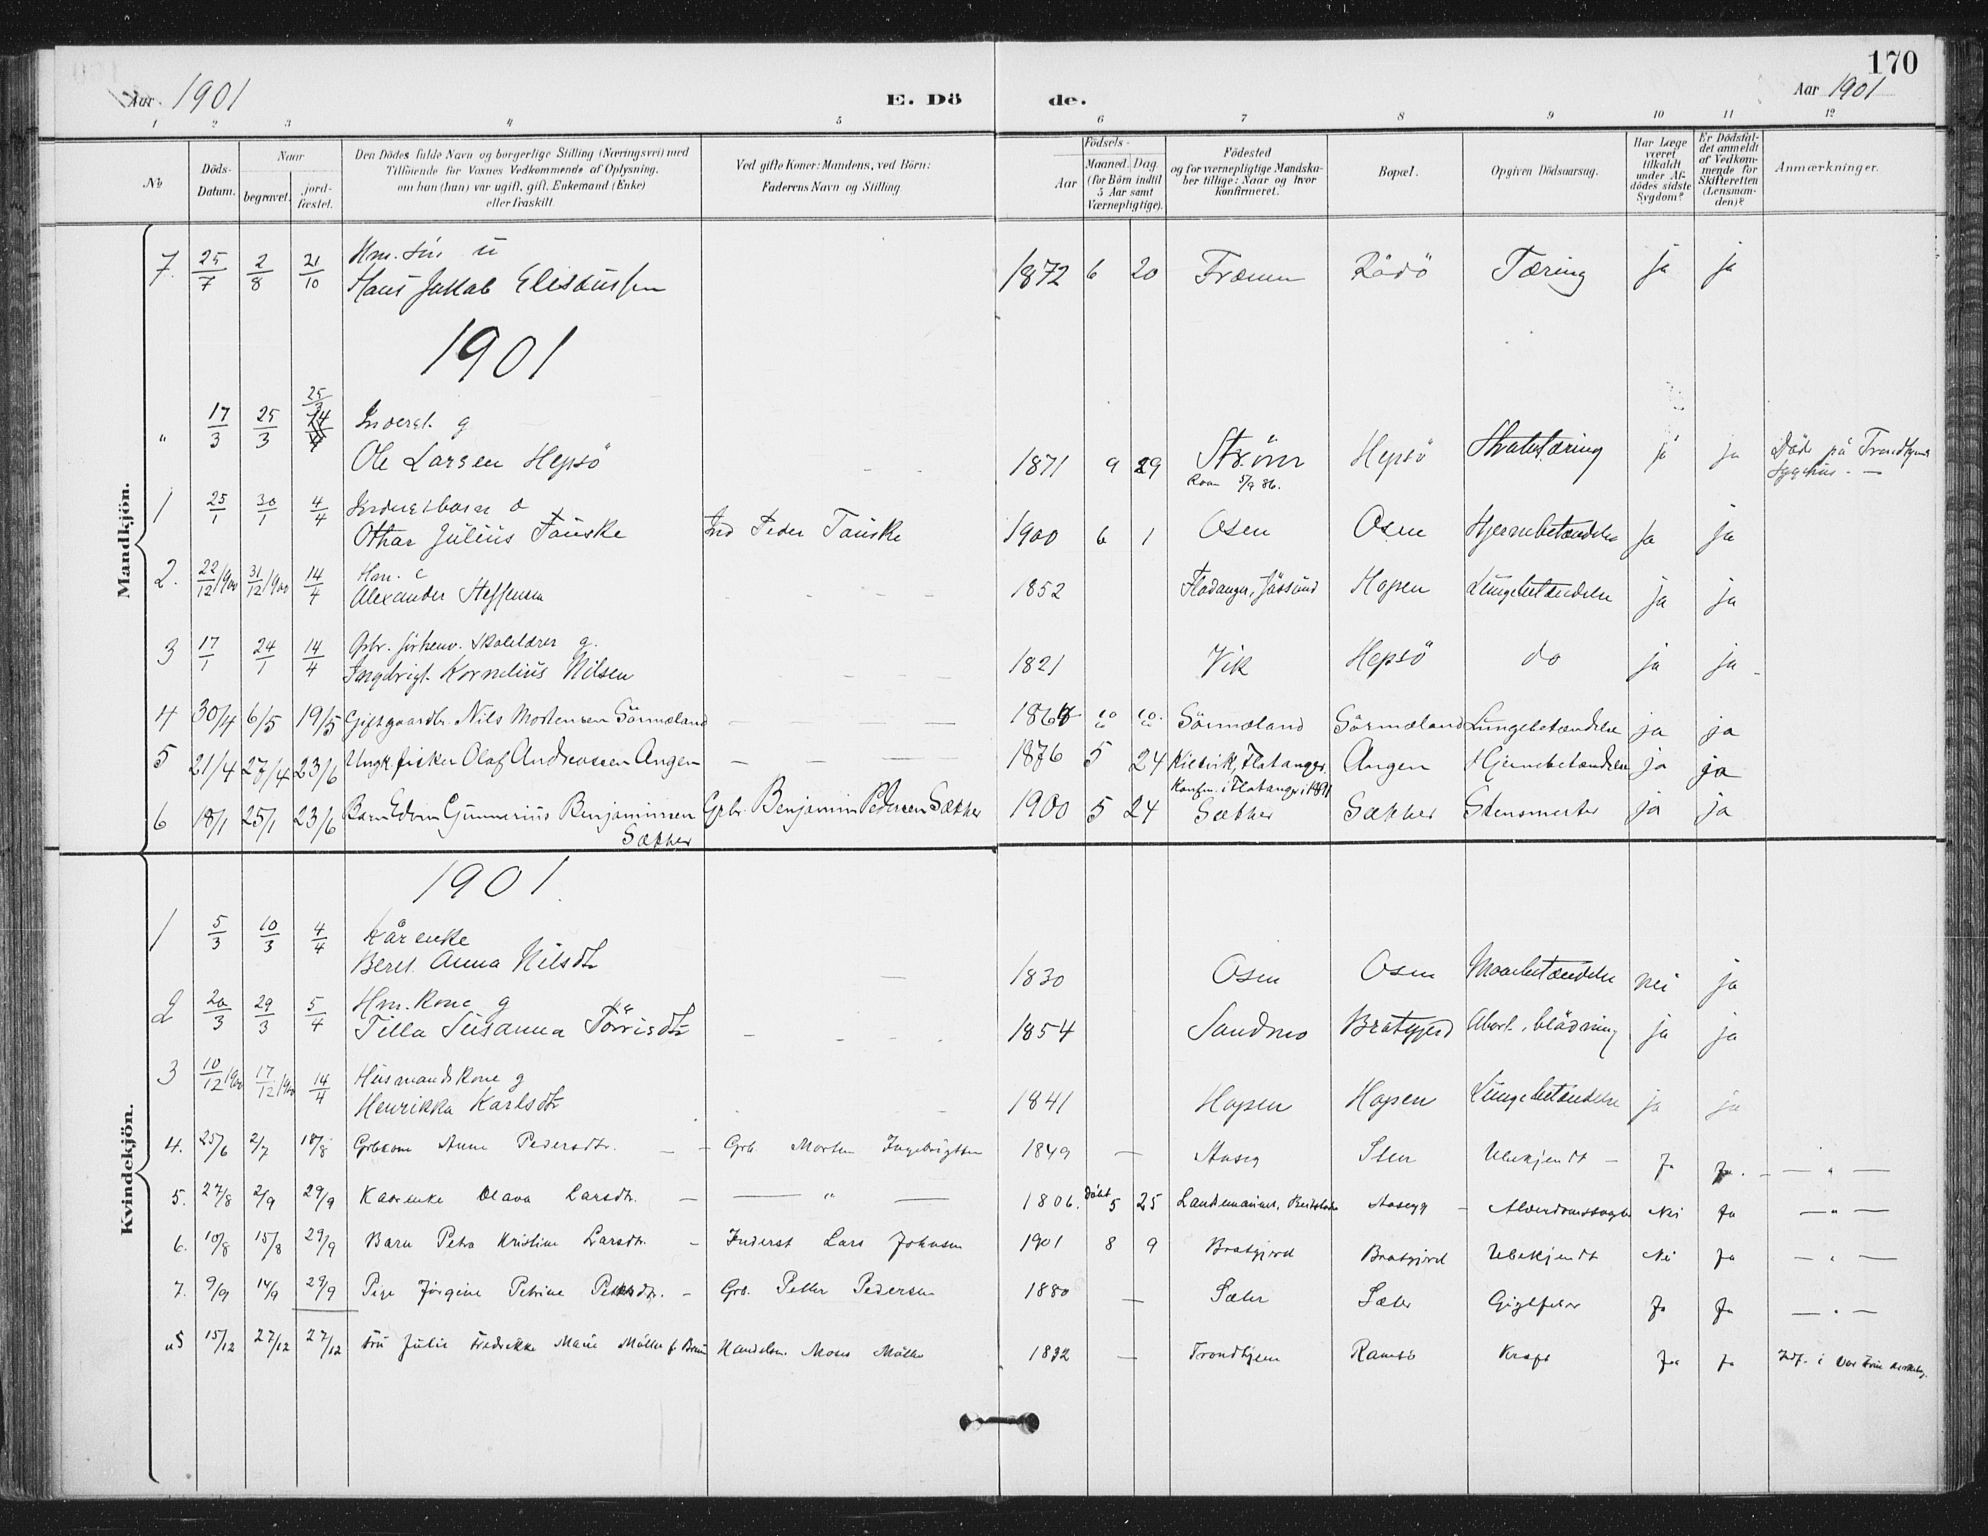 170
Aar 1901
E. Dö
de.
Aar 1901
1 2 3 4 5 6 7 8 9 10 11 12
№
Döds-Datum.
Naar
begravet.
jord-fæstet.
Den Dödes fulde Navn og borgerlige Stilling (Næringsvei) med
Tilföiende for Voxnes Vedkommende af Oplysning,
om han (hun) var ugift, gift, Enkemand (Enke)
eller fraskilt.
Ved gifte Koner: Mandens, ved Börn:
Faderens Navn og Stilling.
Födsels-
Aar
Maaned. Dag.
(for Börn indtil
5 Aar samt
Værnepligtige).
Födested
og for værnepligtige Mandska-
ber tillige: Naar og hvor
konfirmeret.
Bopæl.
Opgiven Dödsaarsag.
Har Læge
været
tilkaldt
under Af-
dödes sidste
Sygdom?
Er Dödsfal-
det anmeldt
af Vedkom-
mende for
Skifteretten
(Lensman-
den)?
Anmærkninger.
Mandkjön.
7. 25/7 2/8 21/10 Hm. sön ú
Hans Jakob Eliseussen 1872 6 20 Rådö Tæring ja ja
1901
" 17/3 25/3 25/3 Inderst. g
Ole Larsen Hepsö 1871 9 29 Strøm Hepsö ja ja Död på Trondhjems
Sygehus. —
1 25/1 30/1 4/4
Othar Julius Fauske Ind Peder Fauske 1900 6 1 Osen Osen Hjernebetændelse Ja ja
2. 22/12 1900 31/12 1900 14/4 Hm. e
Alexander Steffensen 1852 Fladanger, Jøssund Hopen Lungebetændelse ja ja
3 17/1 24/1 14/4 Gbr. skolelærer g.
Ingebrigt. Kornelius Nilsen 1821 Vik Hepsö do ja ja
4 30/4 6/5 19/5 Gift gaardbr. Nils Mortensen Sörmæland 1868 10 10. Sörmæland Sörmæland Lungebetændelse ja ja
5 21/4 27/4 23/6 Ungk. fisker Olaf Andreassen Angen 1876 5 24 Kietvik, Flatanger. Angen Hjernebetændelse ja ja
Konfm. i Flatanger i 1891
6 18/1 25/1 23/6 Barn Edvin Gunnerius Benjaminsen Gbr. Benjamin Pedersen Sætther 1900 5 24 Sætther Sætther Stensmerter ja ja
Sætther
Kvindekjön.
1901.
1 5/3 10/3 4/4 Kårenke
Beret Anna Nilsdtr 1830 Osen Osen Mavebetændelse nei ja
2 20/3 29/3 5/4 Hm. Kone g
Tilla Susanna Törrisdtr 1854 Sandmo Bratgjerd Abort, blödning ja ja
3 10/12 1900 17/12 1900 14/4 Husmandskone g
Henrikka Karlsdtr 1841 Hopen Hopen Lungebetændelse ja ja
4. 25/6 2/7 18/8 Grbkone Anne Pedersdtr. — Grb Morten Ingebrigtsen 1849 — Aaseg Sten Ubekjendt — Ja Ja. — " —
5. 27/8 2/9 29/9 Kaarenke Olava Larsdtr. — " — 1806. döbt 5 25 Aasegg Alderdomssvaghed Nei Ja — " —
6. 10/8 15/8 29/9 Barn Petra Kristine Larsdtr. — Inderst Lars Johnsen 1901 8 9 Bratgjerd Bratgjerd Ubekjendt Nei Ja — " —
7. 9/9 14/9 29/9 Pige Jörgine Petrine Pettersdtr. — Grb. Petter Pedersen 1880 — Sæter Sæter Gigtfeber Ja Ja — " —
15/12 27/12 27/12 Fru Julie Fredrikke Marie Möller f. Brun Handelsm. Moses Möller 1832 — Trondhjem Ramsö Kræft Ja Ja